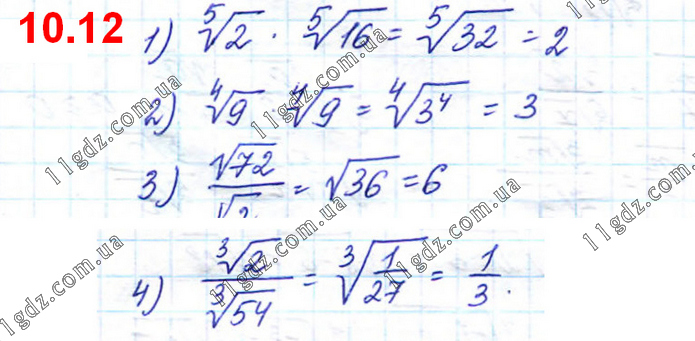 10.12
1) ⁵√2 · ⁵√16 = ⁵√32 = 2
2) ⁴√9 · ⁴√9 = ⁴√3⁴ = 3
3) √72/√2 = √36 = 6
4) ³√2/³√54 = ³√(1/27) = 1/3.
11gdz.com.ua
11gdz.com.ua
11gdz.com.ua
11gdz.com.ua
11gdz.com.ua
11gdz.com.ua